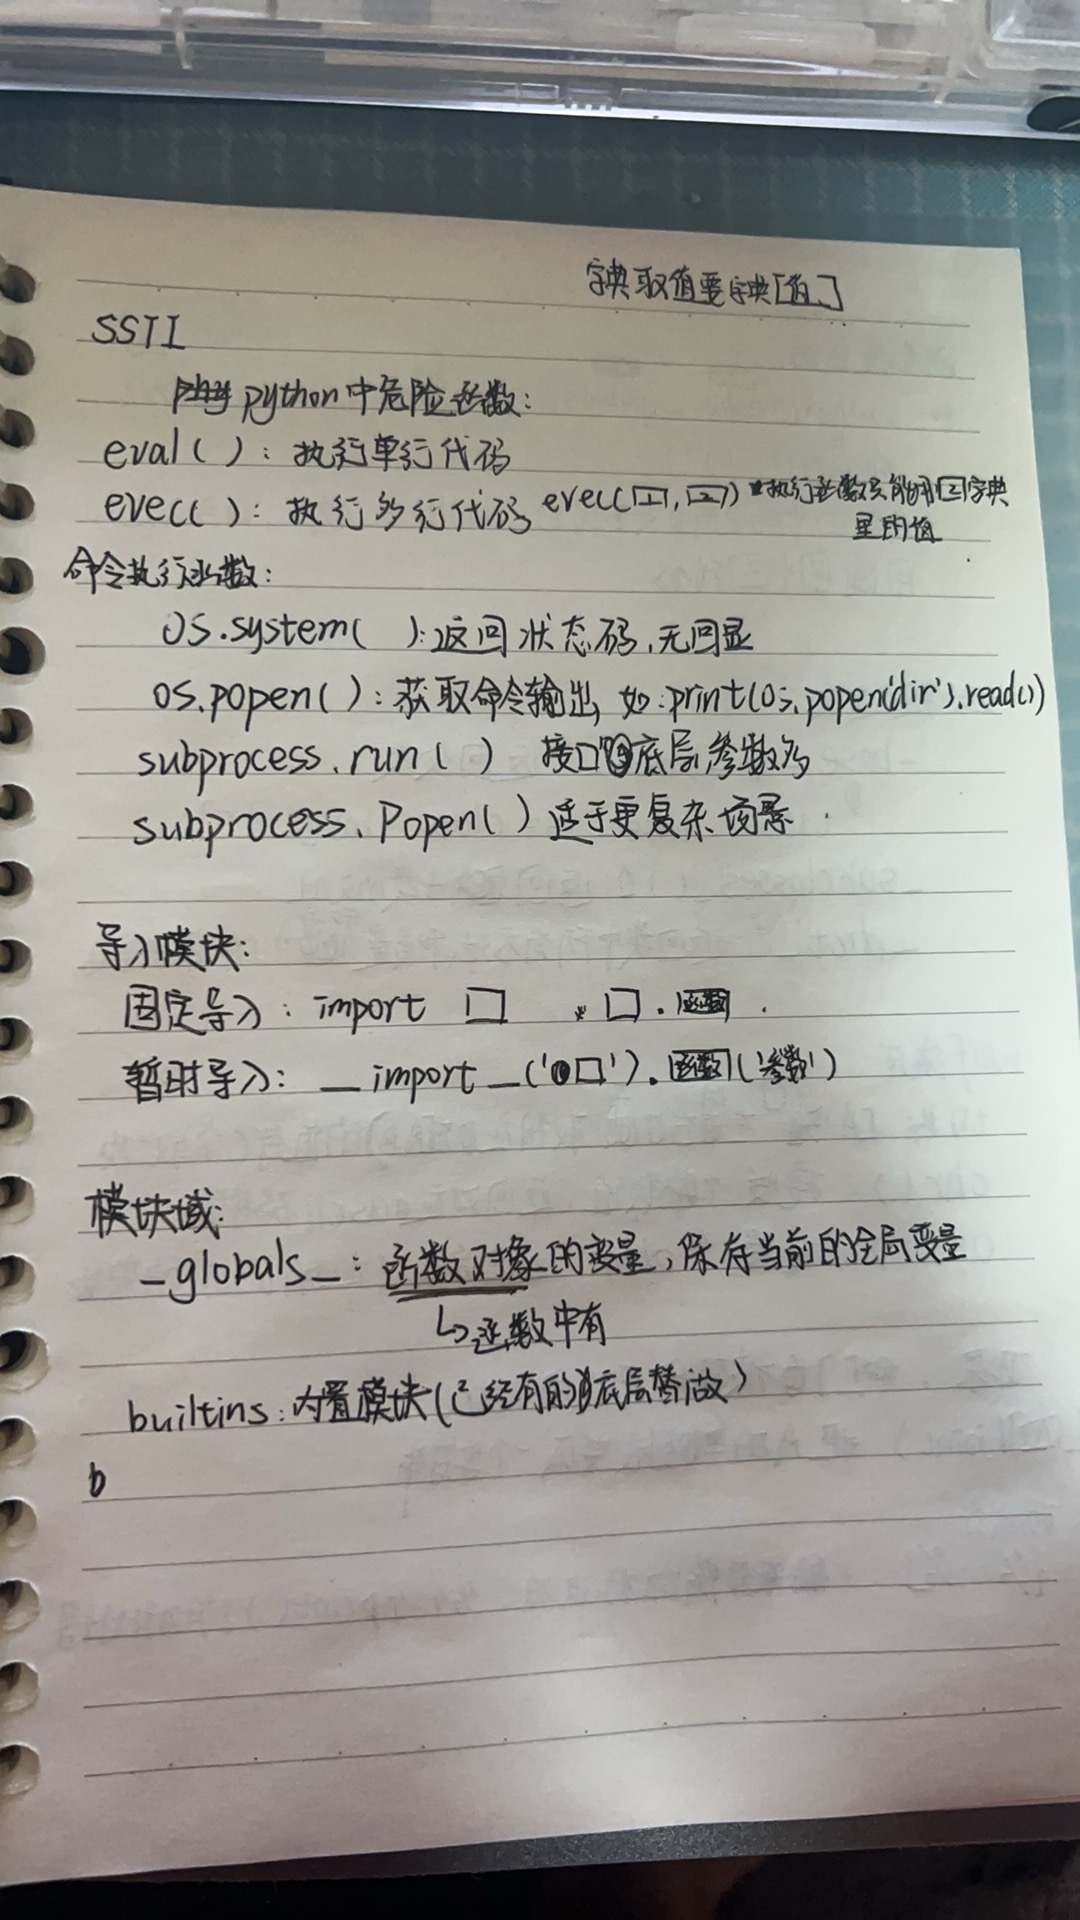 字典取值要字典[值、]
SSTI
python中危险函数：
eval( )：执行单行代码
evec( )：执行多行代码 evec(1, 2) 执行函数只能用2字典
里的值
命令执行函数：
os.system( )：返回状态码，无回显
os.popen( )：获取命令输出，如：print(os.popen('dir').read())
subprocess.run( ) 接口底层，参数多
subprocess.Popen( ) 适于更复杂场景
导入模块：
固定导入：import □ □.函数
暂时导入：_import_('□').函数('参数')
模块域：
_globals_：函数对象的变量，保存当前的全局变量
↳函数中有
builtins：内置模块(已经有的底层替做)
b